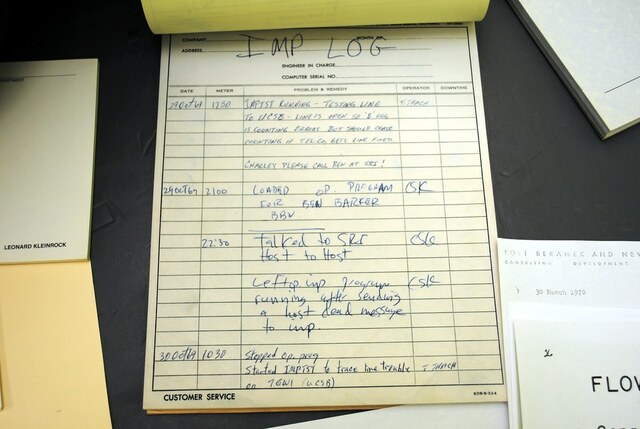 COMPANY
MONTH OF
ADDRESS
IMP LOG
ENGINEER IN CHARGE
COMPUTER SERIAL NO.
DATE METER PROBLEM & REMEDY OPERATION DOWNTIME
29OCT69 1750 IMPTST RUNNING - TESTING LINE
TO UCSB - LINE IS OPEN SO
IS COUNTING ERRORS BUT SHOULD
COUNTING IF TELCO GETS LINE FIXED.
CHARLEY PLEASE CALL BEN AT SRI!
29OCT69 2100 LOADED OP. PROGRAM CSK
FOR BEN BARKER
BBN
22:30 Talked to SRI CSK
Host to Host
Left op. imp. program CSK
running after sending
a host dead message
to imp.
30OCT69 1030 Stopped op. prog
Started IMPTST to trace line trouble
on (UCSB)
CUSTOMER SERVICE
LEONARD KLEINROCK
BOLT BERANEK AND NEW
DEVELOPMENT
30 March 1970
FLOW